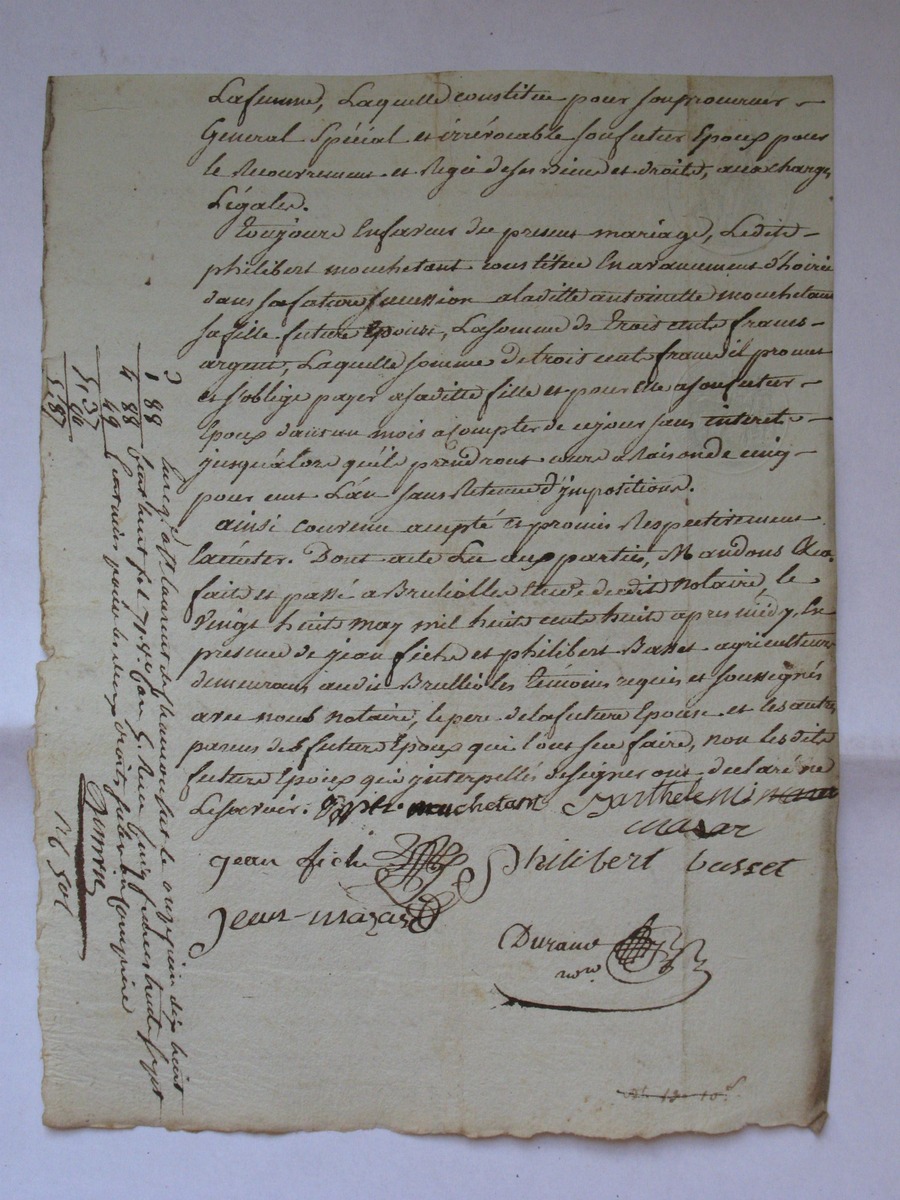 Lafemme, Laquelle constitue pour son procureur -
General Spécial et irrévocable son futur Epoux pour
le Recouvrement et Regie de ses Biens et droits, aux charges
Légales.
Toujours En faveur du present mariage, Ledit -
philibert mouchetant constitue En avancement d'hoirie
dans sa future succession a laditte antoinette mouchetant
sa fille future Epouse, La somme de trois cents francs -
argent, Laquelle somme de trois cent francs il promet
et s'oblige payer a saditte fille et pour Elle a son futur -
Epoux dans un mois a compter de ce jour sans interets -
jusqu'alors qu'ils prendront cours a Raison de cinq -
pour cent L'an sans Retenue d'impositions.
ainsi convenu accepté et promis Respectivement
L'acuter. Dont acte Lu aux parties, Mandons &ca
fait et passé a Brulioles Etude dudit Notaire, le
Vingt huit may mil huit cents huit apres midy, En
presence de jean fiche et philibert Basset agriculteurs
demeurans audit Brullioles témoins requis et soussignés
avec nous notaire, le pere de la future Epouse et les autres
parens des futurs Epoux qui l'ont sçu faire, non lesdits
futurs Epoux qui interpellés de signer ont declaré ne
Le savoir. mouchetant Barthelemi
mazar
jean fiche Philibert basset
Jean mazar
Durand
nre
3
1 88
4 88
49
51 37
Enreg.é à St laurent de Chamousset le onze juin dix huit
cent huit fol. 71